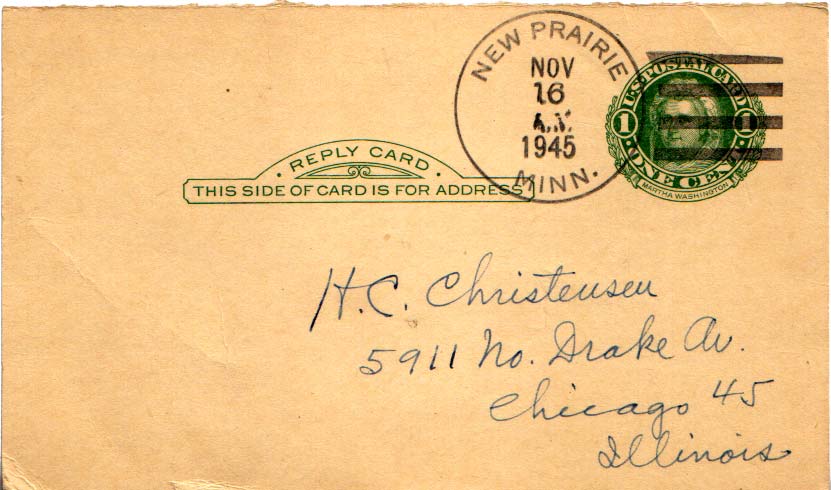 NEW PRAIRIE
NOV
16
A.M.
1945
MINN.
U.S. POSTAL CARD
1 1
ONE CENT
MARTHA WASHINGTON
· REPLY CARD ·
THIS SIDE OF CARD IS FOR ADDRESS
H.C. Christensen
5911 No. Drake Av.
Chicago 45
Illinois